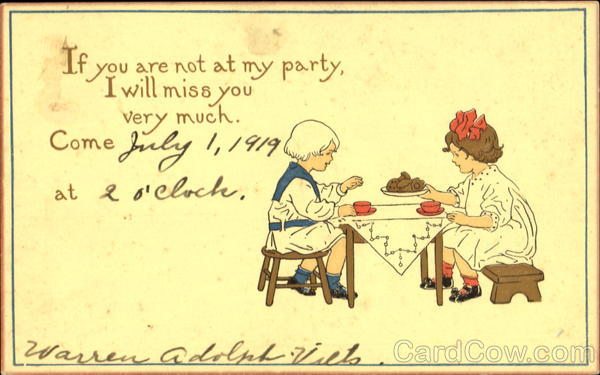 If you are not at my party,
I will miss you
very much.
Come July 1, 1919
at 2 o'clock.
Warren Adolph
CardCow.com